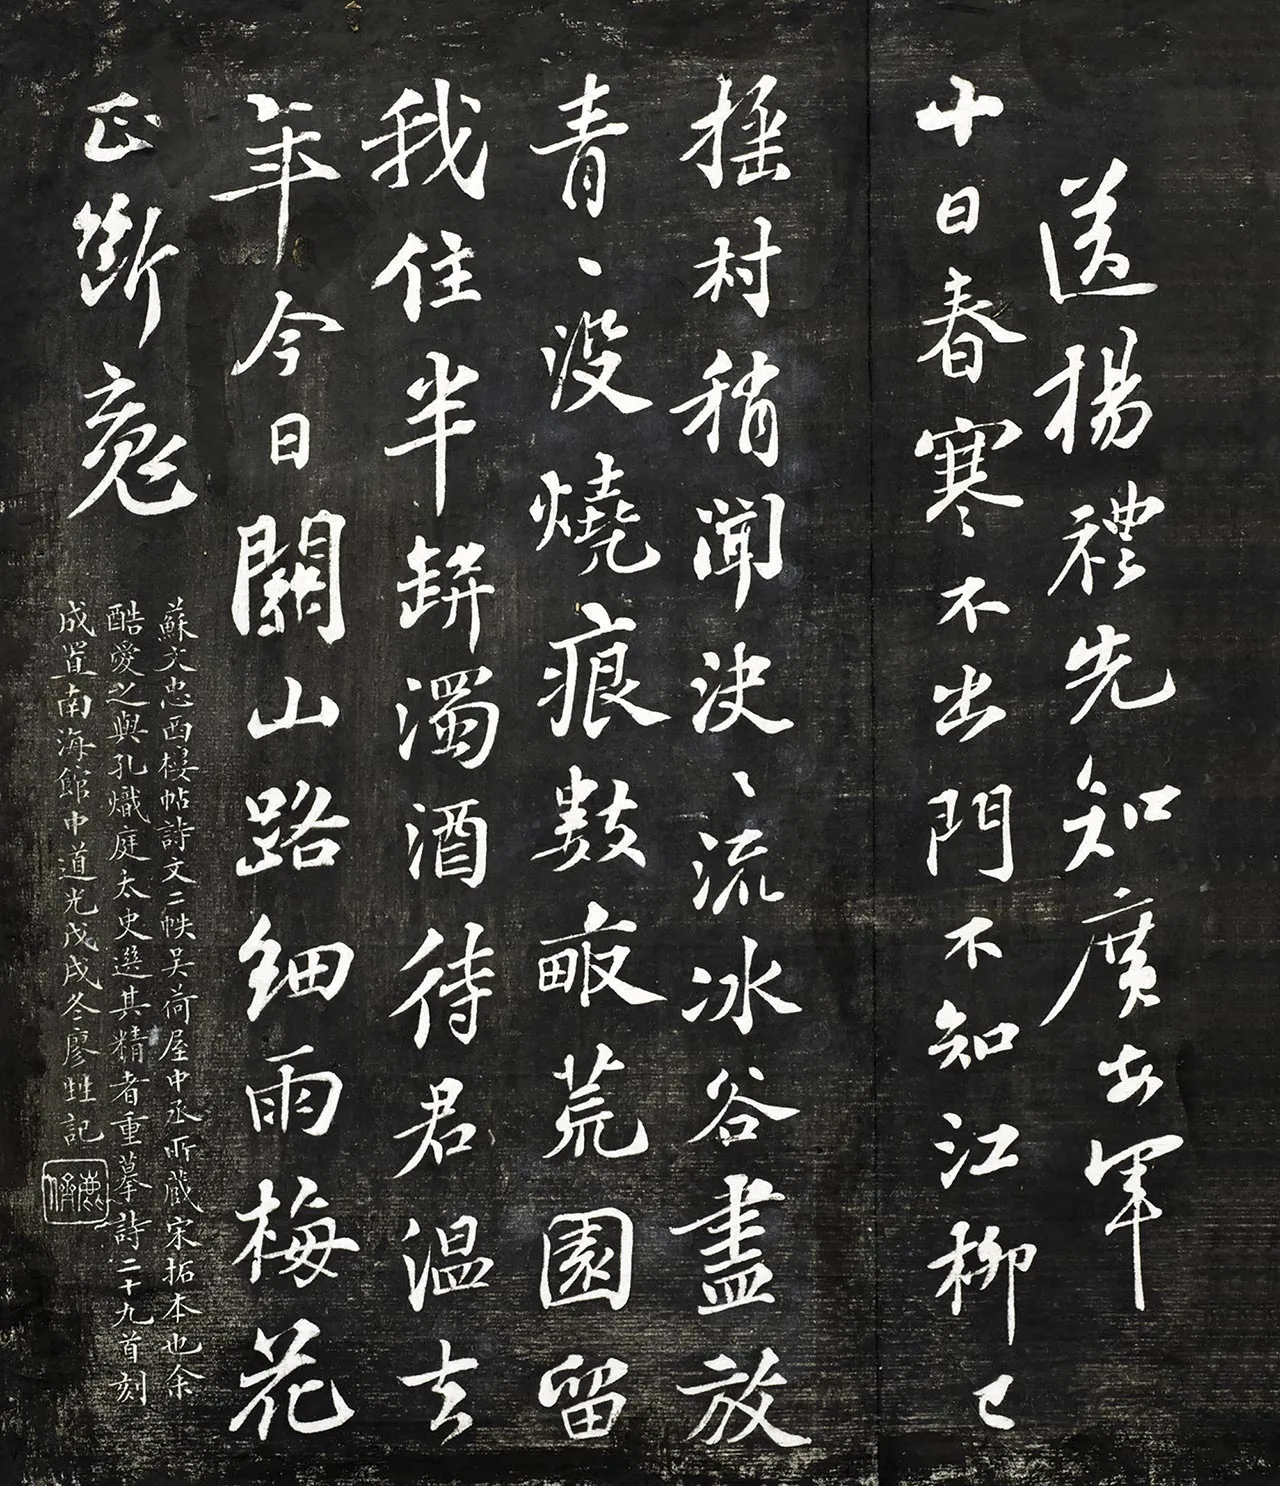 送楊禮先知廣安軍
十日春寒不出門不知江柳已
搖村稍聞決〻流冰谷盡放
青〻沒燒痕數畝荒園留
我住半缾濁酒待君溫去
年今日關山路細雨梅花
正斷魂
蘇文忠西樓帖詩文二帙吴荷屋中丞所藏宋拓本也余
酷愛之與孔熾庭太史選其精者重摹詩二十九首刻
成置南海館中道光戊戌冬廖甡記